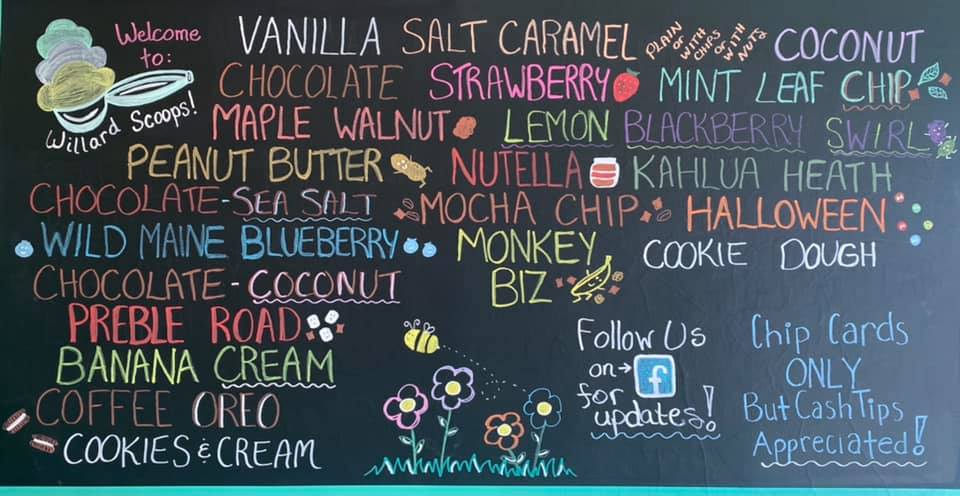 Welcome to:
Willard Scoops!
VANILLA SALT CARAMEL PLAIN or WITH CHIPS or WITH NUTS COCONUT
CHOCOLATE STRAWBERRY MINT LEAF CHIP
MAPLE WALNUT LEMON BLACKBERRY SWIRL
PEANUT BUTTER NUTELLA KAHLUA HEATH
CHOCOLATE-SEA SALT MOCHA CHIP HALLOWEEN
WILD MAINE BLUEBERRY MONKEY BIZ COOKIE DOUGH
CHOCOLATE-COCONUT
PREBLE ROAD
BANANA CREAM
COFFEE OREO
COOKIES & CREAM
Follow Us
on→ f
for
updates!
Chip Cards
ONLY
But Cash Tips
Appreciated!